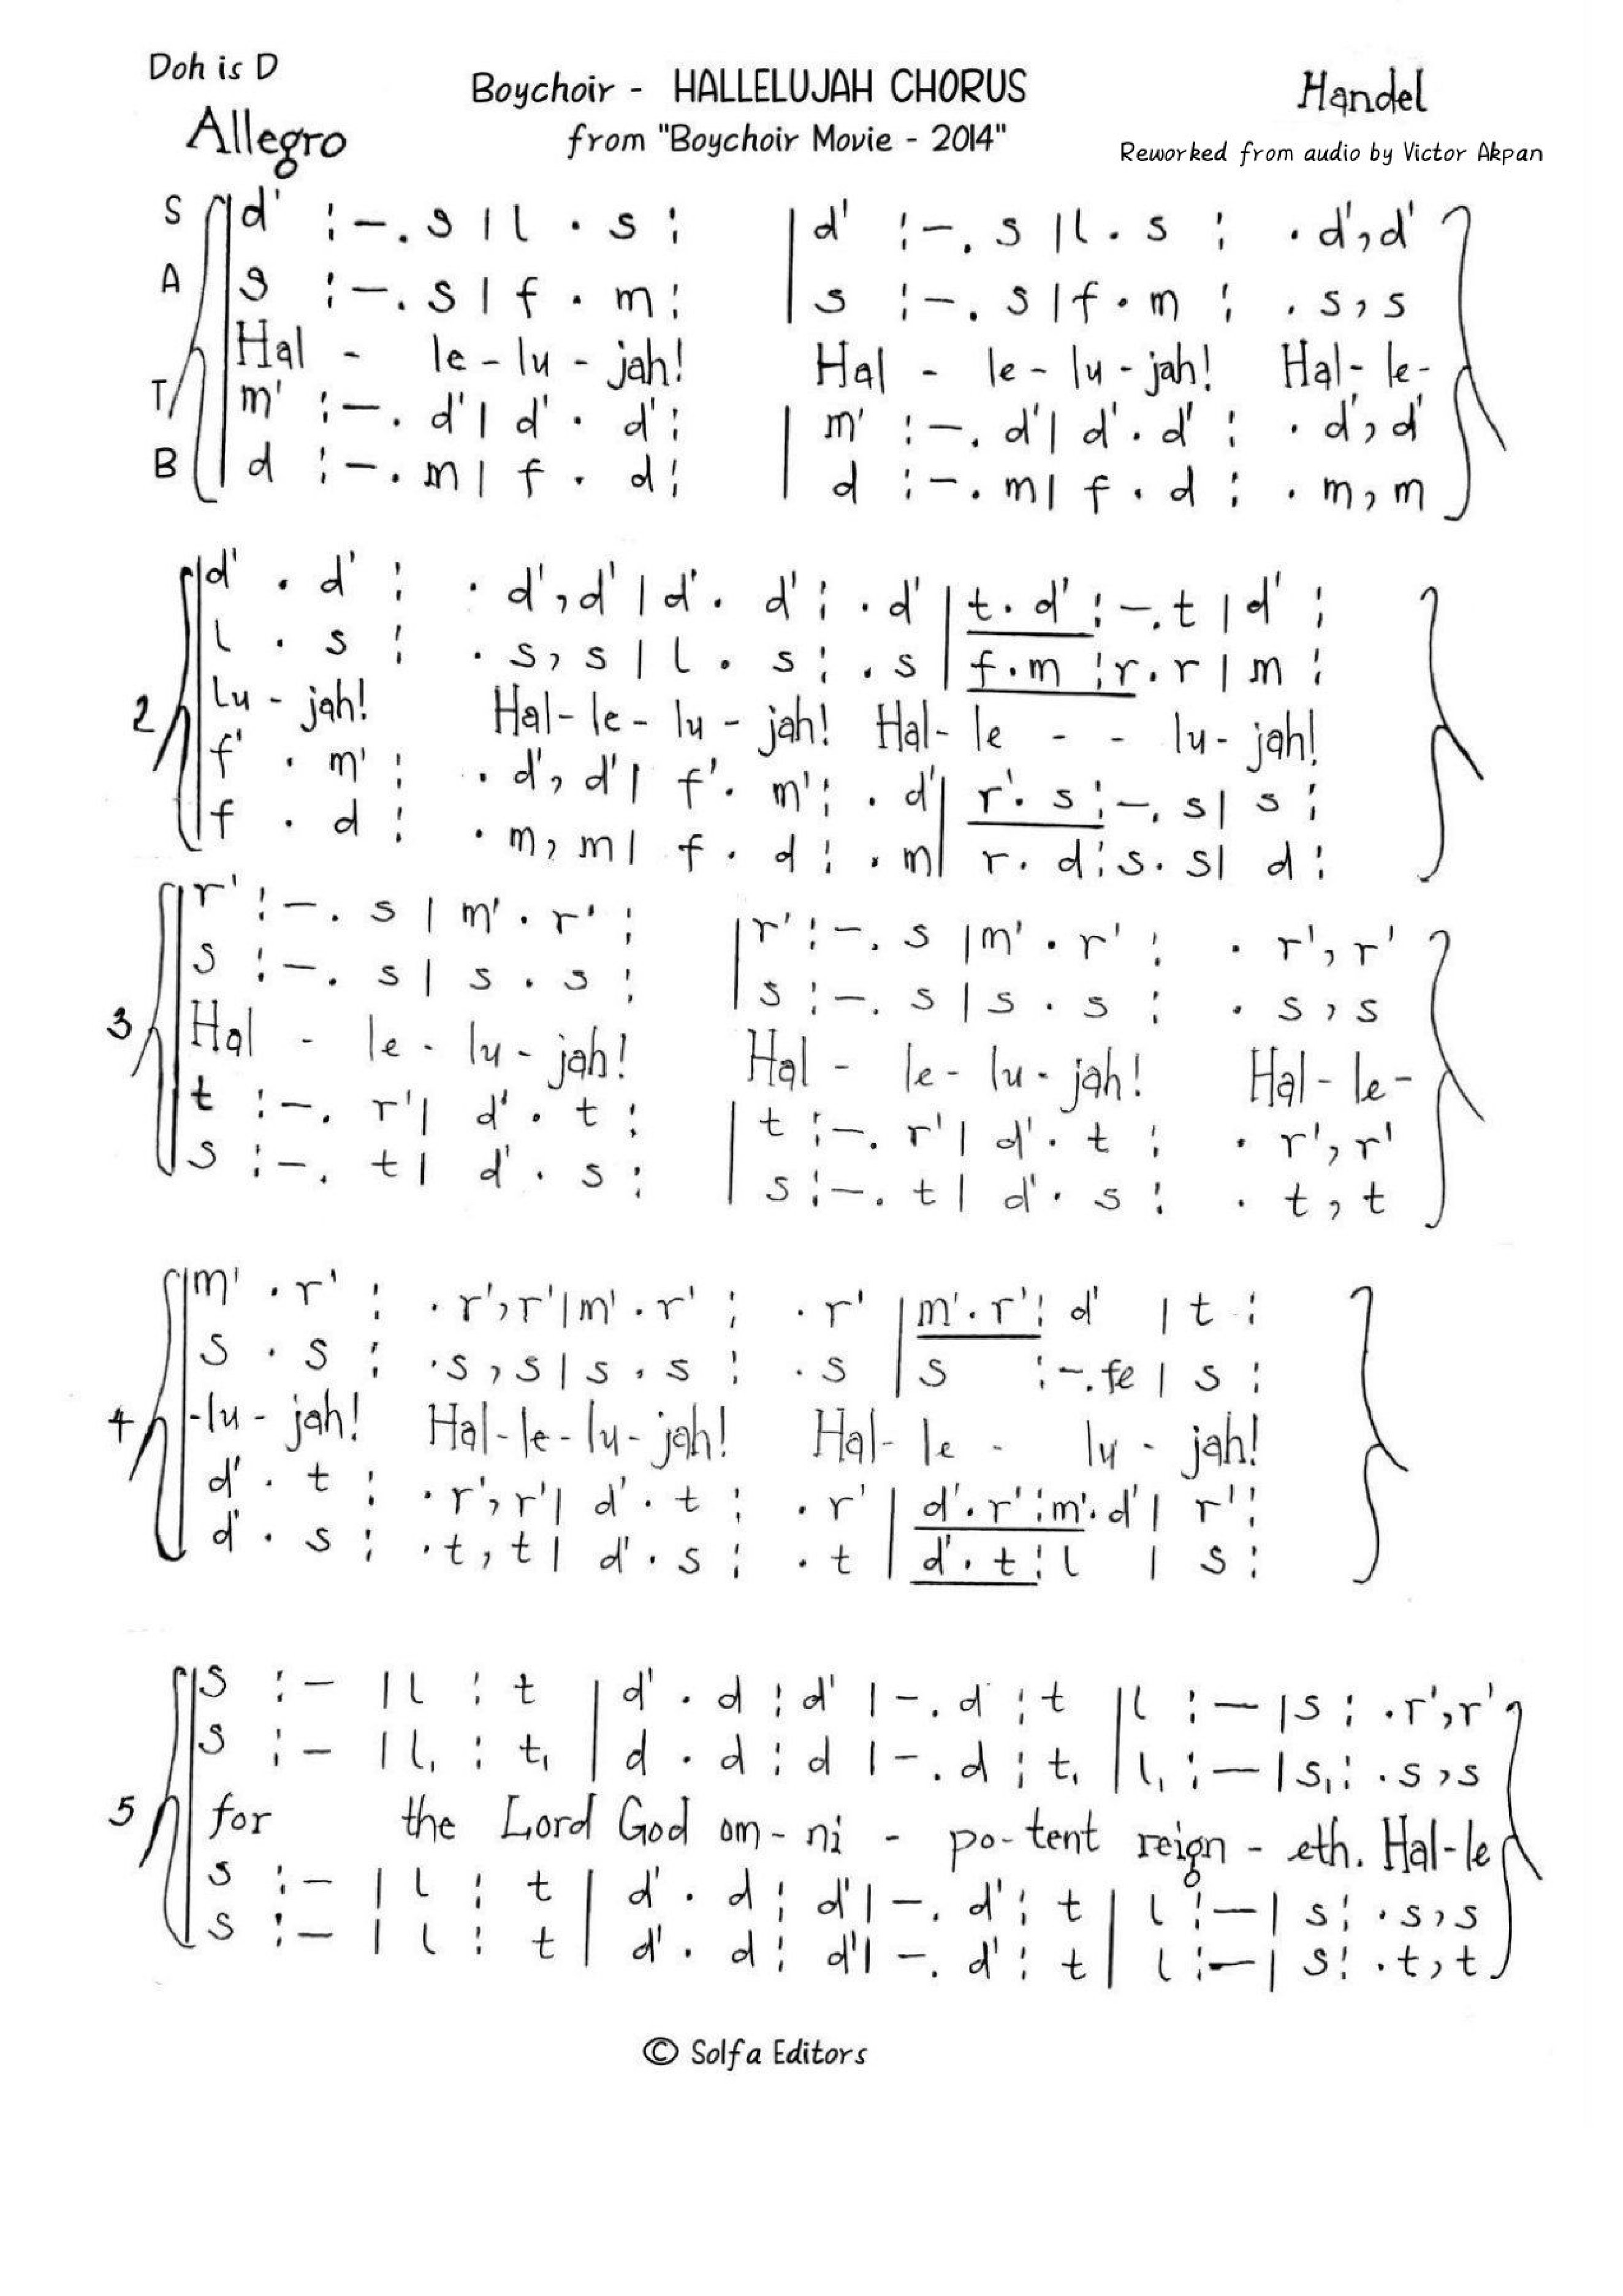 Doh is D
Boychoir - HALLELUJAH CHORUS
Handel
Allegro
from "Boychoir Movie - 2014"
Reworked from audio by Victor Akpan
S d' :-. s | l . s : | d' :-. s | l . s : . d', d'
A s :-. s | f . m : | s :-. s | f . m : . s, s
Hal - le - lu - jah! Hal - le - lu - jah! Hal - le -
T m' :-. d' | d' . d' : | m' :-. d' | d' . d' : . d', d'
B d :-. m | f . d : | d :-. m | f . d : . m, m
d' . d' : . d', d' | d' . d' : . d' | t . d' :-. t | d' :
l . s : . s, s | l . s : . s | f . m : r . r | m :
2 lu - jah! Hal - le - lu - jah! Hal - le - - lu - jah!
f' . m' : . d', d' | f' . m' : . d' | r' . s :-. s | s :
f . d : . m, m | f . d : . m | r . d : s . s | d :
r' :-. s | m' . r' : | r' :-. s | m' . r' : . r', r'
s :-. s | s . s : | s :-. s | s . s : . s, s
3 Hal - le - lu - jah! Hal - le - lu - jah! Hal - le -
t :-. r' | d' . t : | t :-. r' | d' . t : . r', r'
s :-. t | d' . s : | s :-. t | d' . s : . t, t
m' . r' : . r', r' | m' . r' : . r' | m' . r' : d' | t :
s . s : . s, s | s . s : . s | s :-. fe | s :
4 -lu - jah! Hal - le - lu - jah! Hal - le - lu - jah!
d' . t : . r', r' | d' . t : . r' | d' . r' : m' . d' | r' :
d' . s : . t, t | d' . s : . t | d' . t : l | s :
s :- | l : t | d' . d : d' |-. d : t | l :- | s : . r', r'
s :- | l, : t, | d . d : d |-. d : t, | l, :- | s, : . s, s
5 for the Lord God om - ni - po - tent reign - eth. Hal - le
s :- | l : t | d' . d : d' |-. d' : t | l :- | s : . s, s
s :- | l : t | d' . d : d' |-. d' : t | l :- | s : . t, t
© Solfa Editors